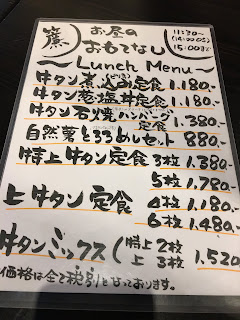 お昼の
おもてなし
11:30〜
(14:00 OS)
15:00まで
〜Lunch Menu〜
牛タン煮込み定食 1.180-
牛タン葱塩丼定食 1.180-
牛タン石焼ハンバーグ定食 1.380-
自然薯とろろめしセット 880-
特上牛タン定食 3枚 1.380-
5枚 1.780-
上牛タン定食 4枚 1.180-
6枚 1.480-
牛タンミックス(特上2枚
上 3枚 1.520
価格は全て税別となっております。